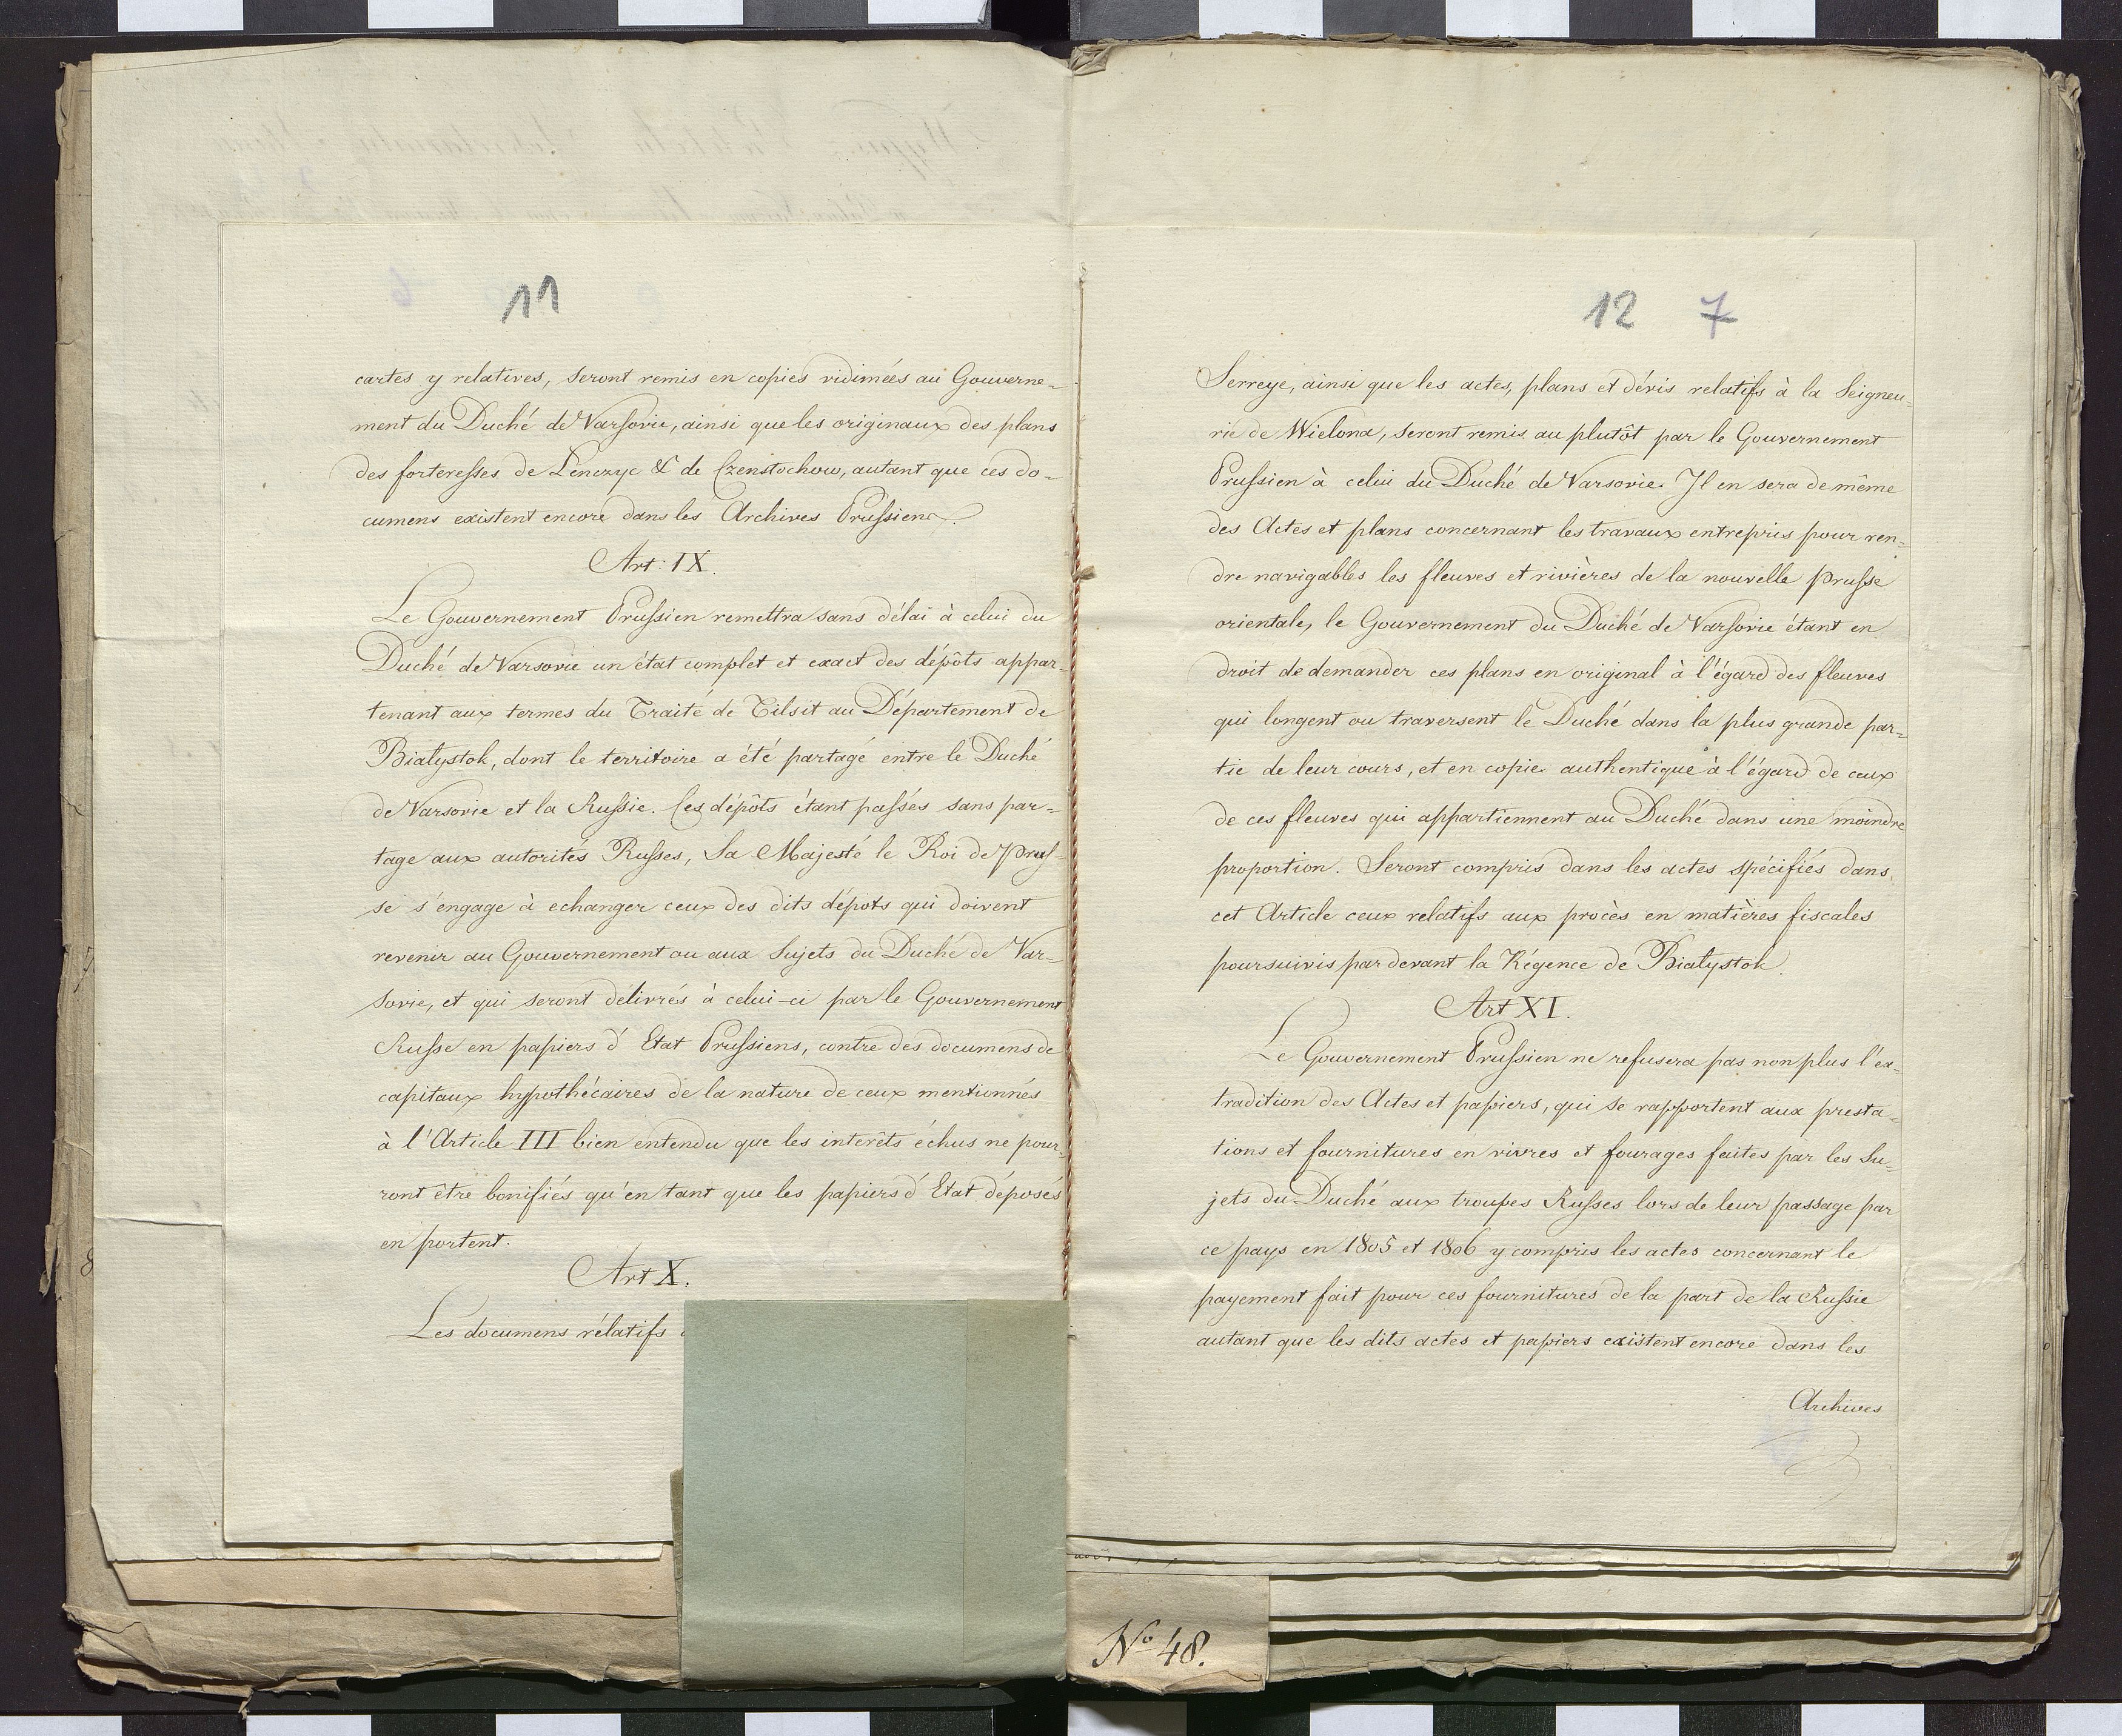 11
cartes y relatives, seront remis en copies vidimées au Gouverne-
ment du Duché de Varsovie, ainsi que les originaux des plans
des forteresses de Lenczyc & de Czenstochow, autant que ces do-
cumens existent encore dans les Archives Prussiens.
Art: IX.
Le Gouvernement Prussien remettra sans délai à celui du
Duché de Varsovie un état complet et exact des dépôts appar-
tenant aux termes du Traité de Tilsit au Département de
Białystok, dont le territoire a été partagé entre le Duché
de Varsovie et la Russie. Ces dépôts étant passés sans par-
tage aux autorités Russes, Sa Majesté le Roi de Prus-
se s'engage à echanger ceux des dits dépots qui doivent
revenir au Gouvernement ou aux Sujets du Duché de Var-
sovie, et qui seront delivrés à celui-ci par le Gouvernement
Russe en papiers d'Etat Prussiens, contre des documens de
capitaux hypothécaires de la nature de ceux mentionnés
à l'Article III bien entendu que les interêts échus ne pour-
ront être bonifiés qu'en tant que les papiers d'Etat déposés
en portent.
Art X.
Les documens rélatifs
12 7
Serreye, ainsi que les actes, plans et dévis relatifs à la Seigneu-
rie de Wielona, seront remis au plutôt par le Gouvernement
Prussien à celui du Duché de Varsovie. Il en sera de même
des Actes et plans concernant les travaux entrepris pour ren-
dre navigables les fleuves et rivières de la nouvelle Prusse
orientale, le Gouvernement du Duché de Varsovie étant en
droit de demander ces plans en original à l'égard des fleuves
qui longent ou traversent le Duché dans la plus grande par-
tie de leur cours, et en copie authentique à l'égard de ceux
de ces fleuves qui appartiennent au Duché dans une moindre
proportion. Seront compris dans les actes spécifiés dans
cet Article ceux relatifs aux procès en matières fiscales
poursuivis par devant la Régence de Białystok.
Art XI.
Le Gouvernement Prussien ne refusera pas non plus l'ex-
tradition des Actes et papiers, qui se rapportent aux presta-
tions et fournitures en vivres et fourages faites par les Su-
jets du Duché aux troupes Russes lors de leur passage par
ce pays en 1805 et 1806 y compris les actes concernant le
payement fait pour ces fournitures de la part de la Russie
autant que les dits actes et papiers existent encore dans les
Archives
No 48.